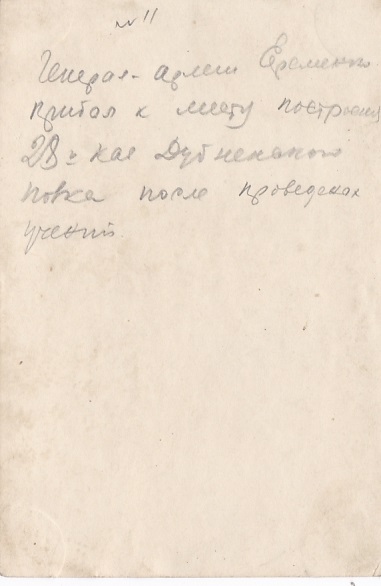 № 11
Генерал-армии Еременко
прибыл к месту построения
28 го кав Дубненского
полка после проведеных
учений.